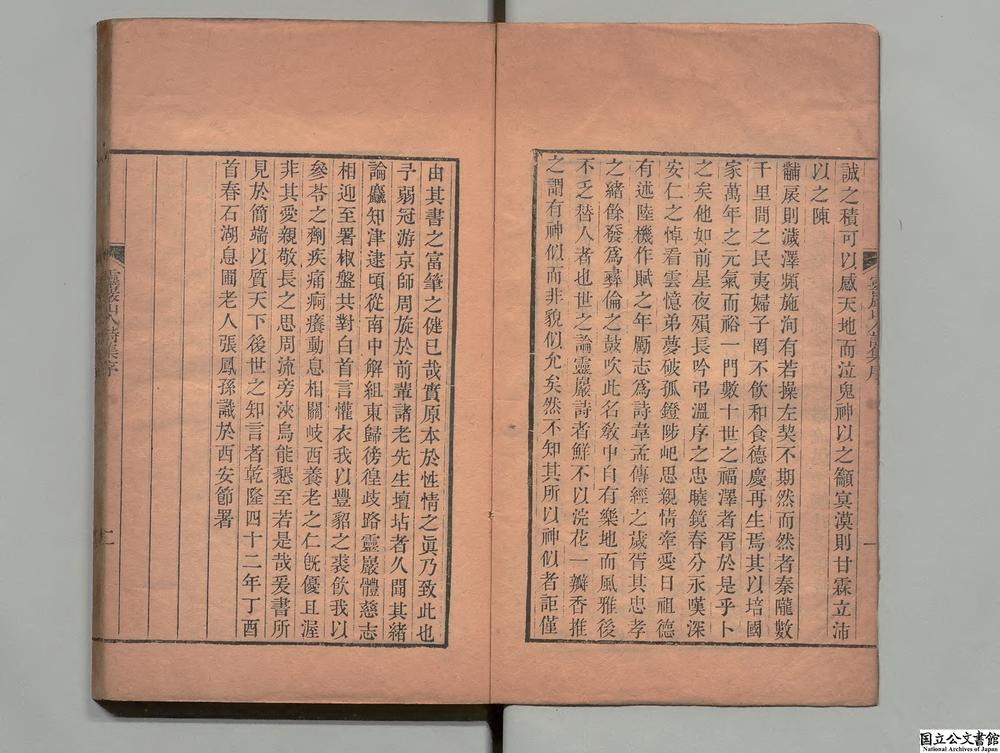 誠之積可以感天地而泣鬼神以之籲冥漠則甘霖立沛
以之陳
黼扆則濊澤頻施洵有若操左契不期然而然者秦隴數
千里間之民夷婦子罔不飲和食德慶再生焉其以培國
家萬年之元氣而裕一門數十世之福澤者胥於是乎卜
之矣他如前星夜殞長吟弔溫序之忠曉鏡春分永嘆深
安仁之悼看雲憶弟夢破孤鐙陟屺思親情牽愛日祖德
有述陸機作賦之年勵志為詩韋孟傳經之歲胥其忠孝
之緒餘發為彝倫之鼓吹此名教中自有樂地而風雅後
不乏替人者也世之論靈巖詩者鮮不以浣花一瓣香推
之謂有神似而非貌似允矣然不知其所以神似者詎僅
由其書之富筆之健已哉實原本於性情之眞乃致此也
予弱冠游京師周旋於前輩諸老先生壇坫者久聞其緒
論麤知津逮頃從南中解組東歸徬徨歧路靈巖體慈志
相迎至署椒盤共對白首言懽衣我以豐貂之裘飲我以
參苓之劑疾痛痾癢動息相關岐西養老之仁旣優且渥
非其愛親敬長之思周流旁浹烏能懇至若是哉爰書所
見於簡端以質天下後世之知言者乾隆四十二年丁酉
首春石湖息圃老人張鳳孫識於西安節署
靈巖山人詩集序
二
国立公文書館
National Archives of Japan